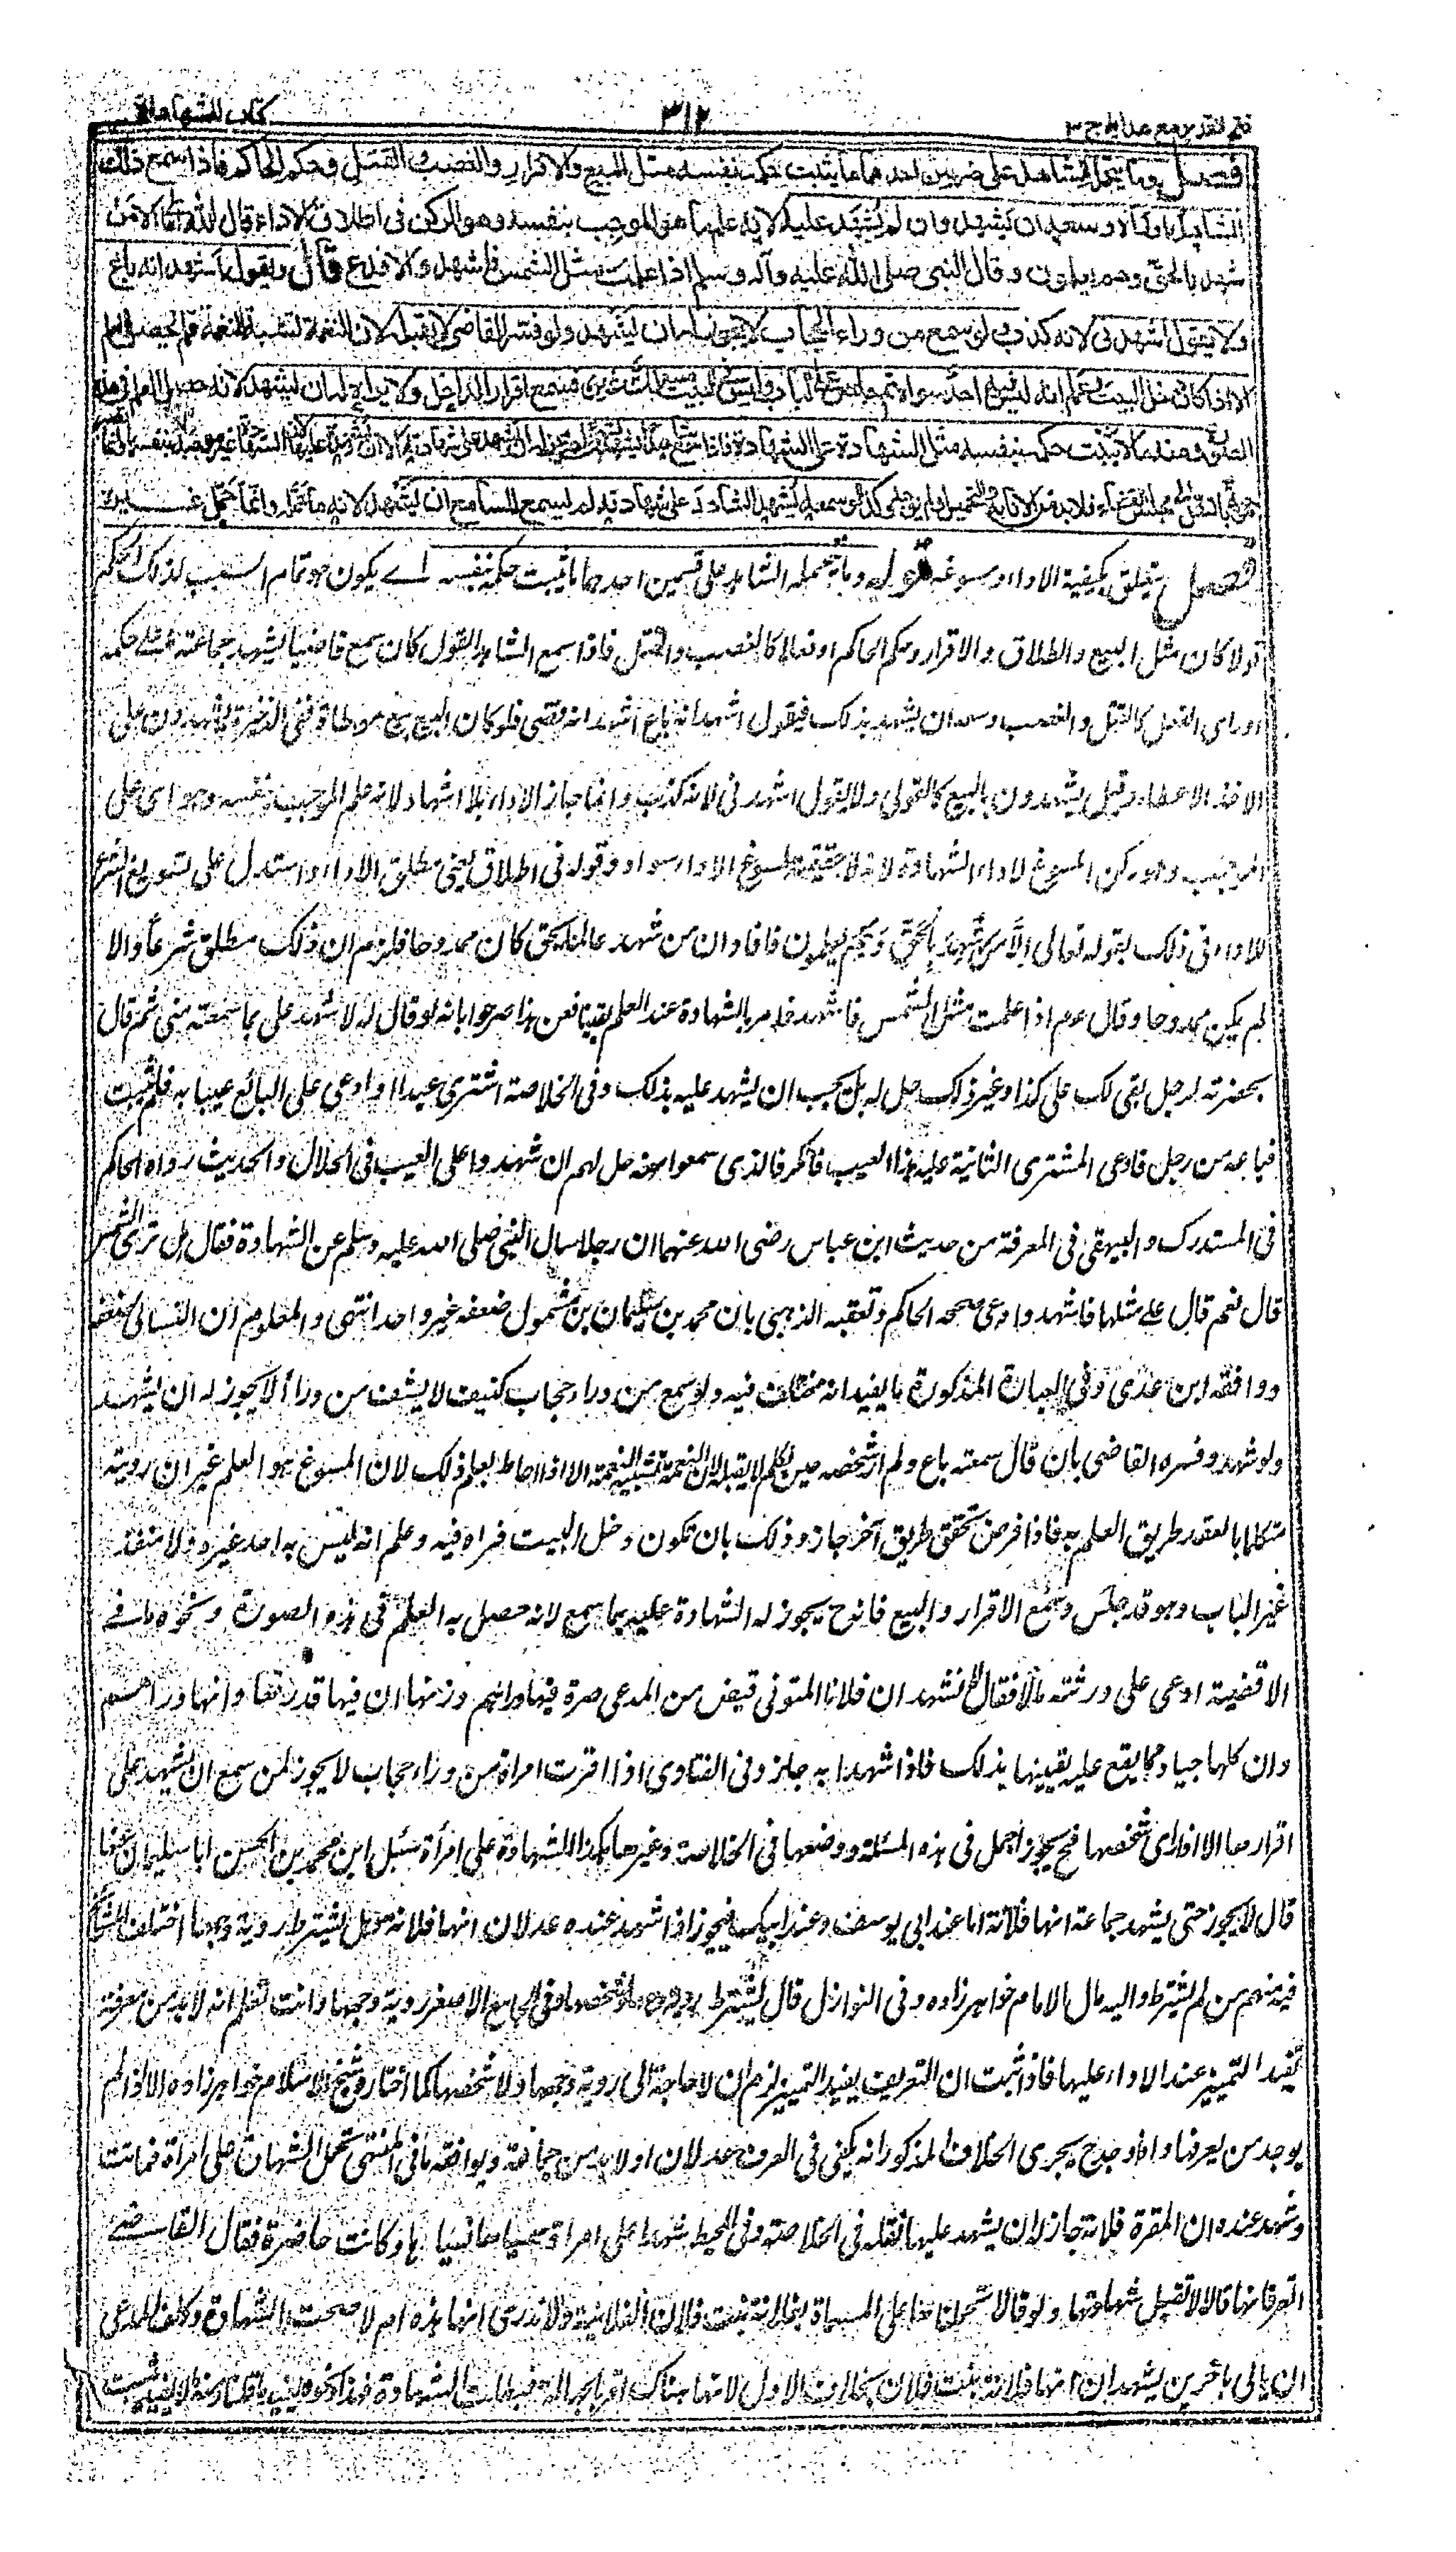 فتح القدير مع هدايه ج ٣
٣١٢
كتاب الشهادات
فصل وما يتحمله الشاهد على ضربين احدهما ما يثبت حكمه بنفسه مثل البيع والاقرار والغصب والقتل وحكم الحاكم فاذا سمع ذلك
الشاهد او رآه وسعه ان يشهد وان لم يشهد عليه لانه علم ما هو الموجب بنفسه وهو الركن في اطلاق الاداء قال الله تعالى الا من
شهد بالحق وهم يعلمون وقال النبي صلى الله عليه وآله وسلم اذا علمت مثل الشمس فاشهد والا فدع قال ويقول اشهد انه باع
ولا يقول اشهدني لانه كذب ولو سمع من وراء الحجاب لا يجوز له ان يشهد ولو فسر للقاضي لا يقبله لان النغمة تشبه النغمة فلم يحصل العلم
الا اذا كان دخل البيت وعلم انه ليس فيه احد سواه ثم جلس على الباب وليس في البيت مسلك غيره فسمع اقرار الداخل ولا يراه له ان يشهد لانه حصل العلم في هذه
الصورة ومنه ما لا يثبت حكمه بنفسه مثل الشهادة على الشهادة فاذا سمع شاهدا يشهد بشيء لم يجز له ان يشهد على شهادته الا ان يشهد عليها لان الشهادة غير موجبة بنفسها وانما
بالنقل الى مجلس القضاء فلا بد من الانابة والتحميل ولم يوجد وكذا لو سمعه يشهد الشاهد على شهادته لم يسع للسامع ان يشهد لانه ما حمله وانما حمل غيره
فصل يتعلق بكيفية الاداء ومسوغه قوله وما يتحمله الشاهد على قسمين احدهما ما يثبت حكمه بنفسه اے يكون هو تمام السبب لذلك الحكم
قولا كان مثل البيع والطلاق والاقرار وحكم الحاكم او فعلا كالغصب والقتل فاذا سمع الشاهد القول كان سمع قاضيا يشهد جماعة على حكمه
او راى الفعل كالقتل والغصب وسعه ان يشهد بذلك فيقول اشهد انه باع اشهد انه قضى فلو كان البيع بيع معاطاة ففي الذخيرة يشهدون على
الاخذ والاعطاء وقيل يشهدون بالبيع كالقولي ولا يقول اشهدني لانه كذب وانما جاز الاداء بلا اشهاد لانه علم الموجب بنفسه وهو اى على
الموجب وهو ركن المسوغ لاداء الشهادة لانه لا حقيقة لمسوغ الاداء سواه وقوله في اطلاق يعني مطلق الاداء واستدل على تسويغ الشرع
للاداء في ذلك بقوله تعالى الا من شهد بالحق وهم يعلمون فافاد ان من شهد عالما بحق كان ممدوحا فلزم ان ذلك مطلق شرعا والا
لم يكن ممدوحا وقال عم اذا علمت مثل الشمس فاشهد فامر بالشهادة عند العلم يقينا فعن هذا صرحوا بانه لو قال له لا تشهد على بما سمعته منى ثم قال
بحضرته لرجل بقى لك على كذا وغير ذلك حل له بل يجب ان يشهد عليه بذلك وفي الخلاصة اشترى عبدا وادعى على البائع عيبا به فلم يثبت
فباعه من رجل فادعى المشترى الثانية عليه هذا العيب فانكر فالذى سمعوا منه حل لهم ان شهدوا على العيب في الحلال والحديث رواه الحاكم
في المستدرك والبيهقي في المعرفة من حديث ابن عباس رضى الله عنهما ان رجلا سال النبي صلى الله عليه وسلم عن الشهادة فقال هل ترى الشمس
قال نعم قال على مثلها فاشهد او دع صححه الحاكم وتعقبه الذهبي بان محمد بن سليمان بن مشمول ضعفه غير واحد انتهى والمعلوم ان النسائي ضعفه
ووافقه ابن عدى وفي العبارة المذكورة ما يفيد انه مختلف فيه ولو سمع من وراء حجاب كثيف لا يشف من وراءه لا يجوز له ان يشهد
ولو شهد وفسره القاضى بان قال سمعته باع ولم ار شخصه حين تكلم لا يقبله لان النغمة تشبه النغمة الا اذا احاط بعلم ذلك لان المسوغ هو العلم غير ان رويته
متكلما بالعقد طريق العلم به فاذا فرض تحقق طريق آخر جاز وذلك بان يكون دخل البيت فراه فيه وعلم انه ليس به احد غيره ولا منفذ
غير الباب وهو قد جلس وسمع الاقرار والبيع فانه ح يجوز له الشهادة عليه بما سمع لانه حصل به العلم في هذه الصورة ونحوه ما في
الاقضية ادعى على ورثته مالا فقال نشهد ان فلانا المتوفى قبض من المدعى صرة فيها دراهم وزنها ان فيها قدر كذا وانها دراهم
وان كلها جياد مما يقع عليه يقينها بذلك فاذا شهدا به جاز وفي الفتاوى اذا اقرت امراة من وراء حجاب لا يجوز لمن سمع ان يشهد على
اقرارها الا اذا راى شخصها فح يجوز اجمل في هذه المسئلة ووضعها في الخلاصة وغيرها هكذا الشهادة على امرأة سئل ابن محمد بن الحسن ابا سليمان عنها
قال لا يجوز حتى يشهد جماعة انها فلانة اما عند ابي يوسف وعند ابيك فيجوز اذا شهد عنده عدلان انها فلانة وهل يشترط روية وجهها اختلف المشائخ
فيه منهم من لم يشترط واليه مال الامام خواهر زاده وفي النوازل قال يشترط روية شخصها وفي الجامع الاصغر روية وجهها وانت تعلم انه لا بد من معرفة
تفيد التمييز عند الاداء عليها فاذا ثبت ان التعريف يفيد التمييز لزم ان لا حاجة الى روية وجهها ولا شخصها كما اختاره شيخ الاسلام خواهر زاده الا اذا لم
يوجد من يعرفها واذا وجد ح يجرى الخلاف المذكور انه يكفى في المعرف عدلان او لا بد من جماعة ويوافقه ما في المنتقى تحمل الشهادة على امراة فماتت
وشهد عنده ان المقرة فلانة جاز لان يشهد عليها نقله في الخلاصة وفي المحيط شهدا على امراة سمياها ونسباها وكانت حاضرة فقال القاضى
اتعرفانها قالا لا لا تقبل شهادتهما ولو قالا تحملناها على المسماة بفلانة بنت فلان الفلانية ولا ندرى انها هذه ام لا صحت الشهادة وكلف المدعى
ان ياتى باخرين يشهدان انها فلانة بنت فلان بخلاف الاول لانهما هناك اقرا بالجهالة فبطلت الشهادة فهذا